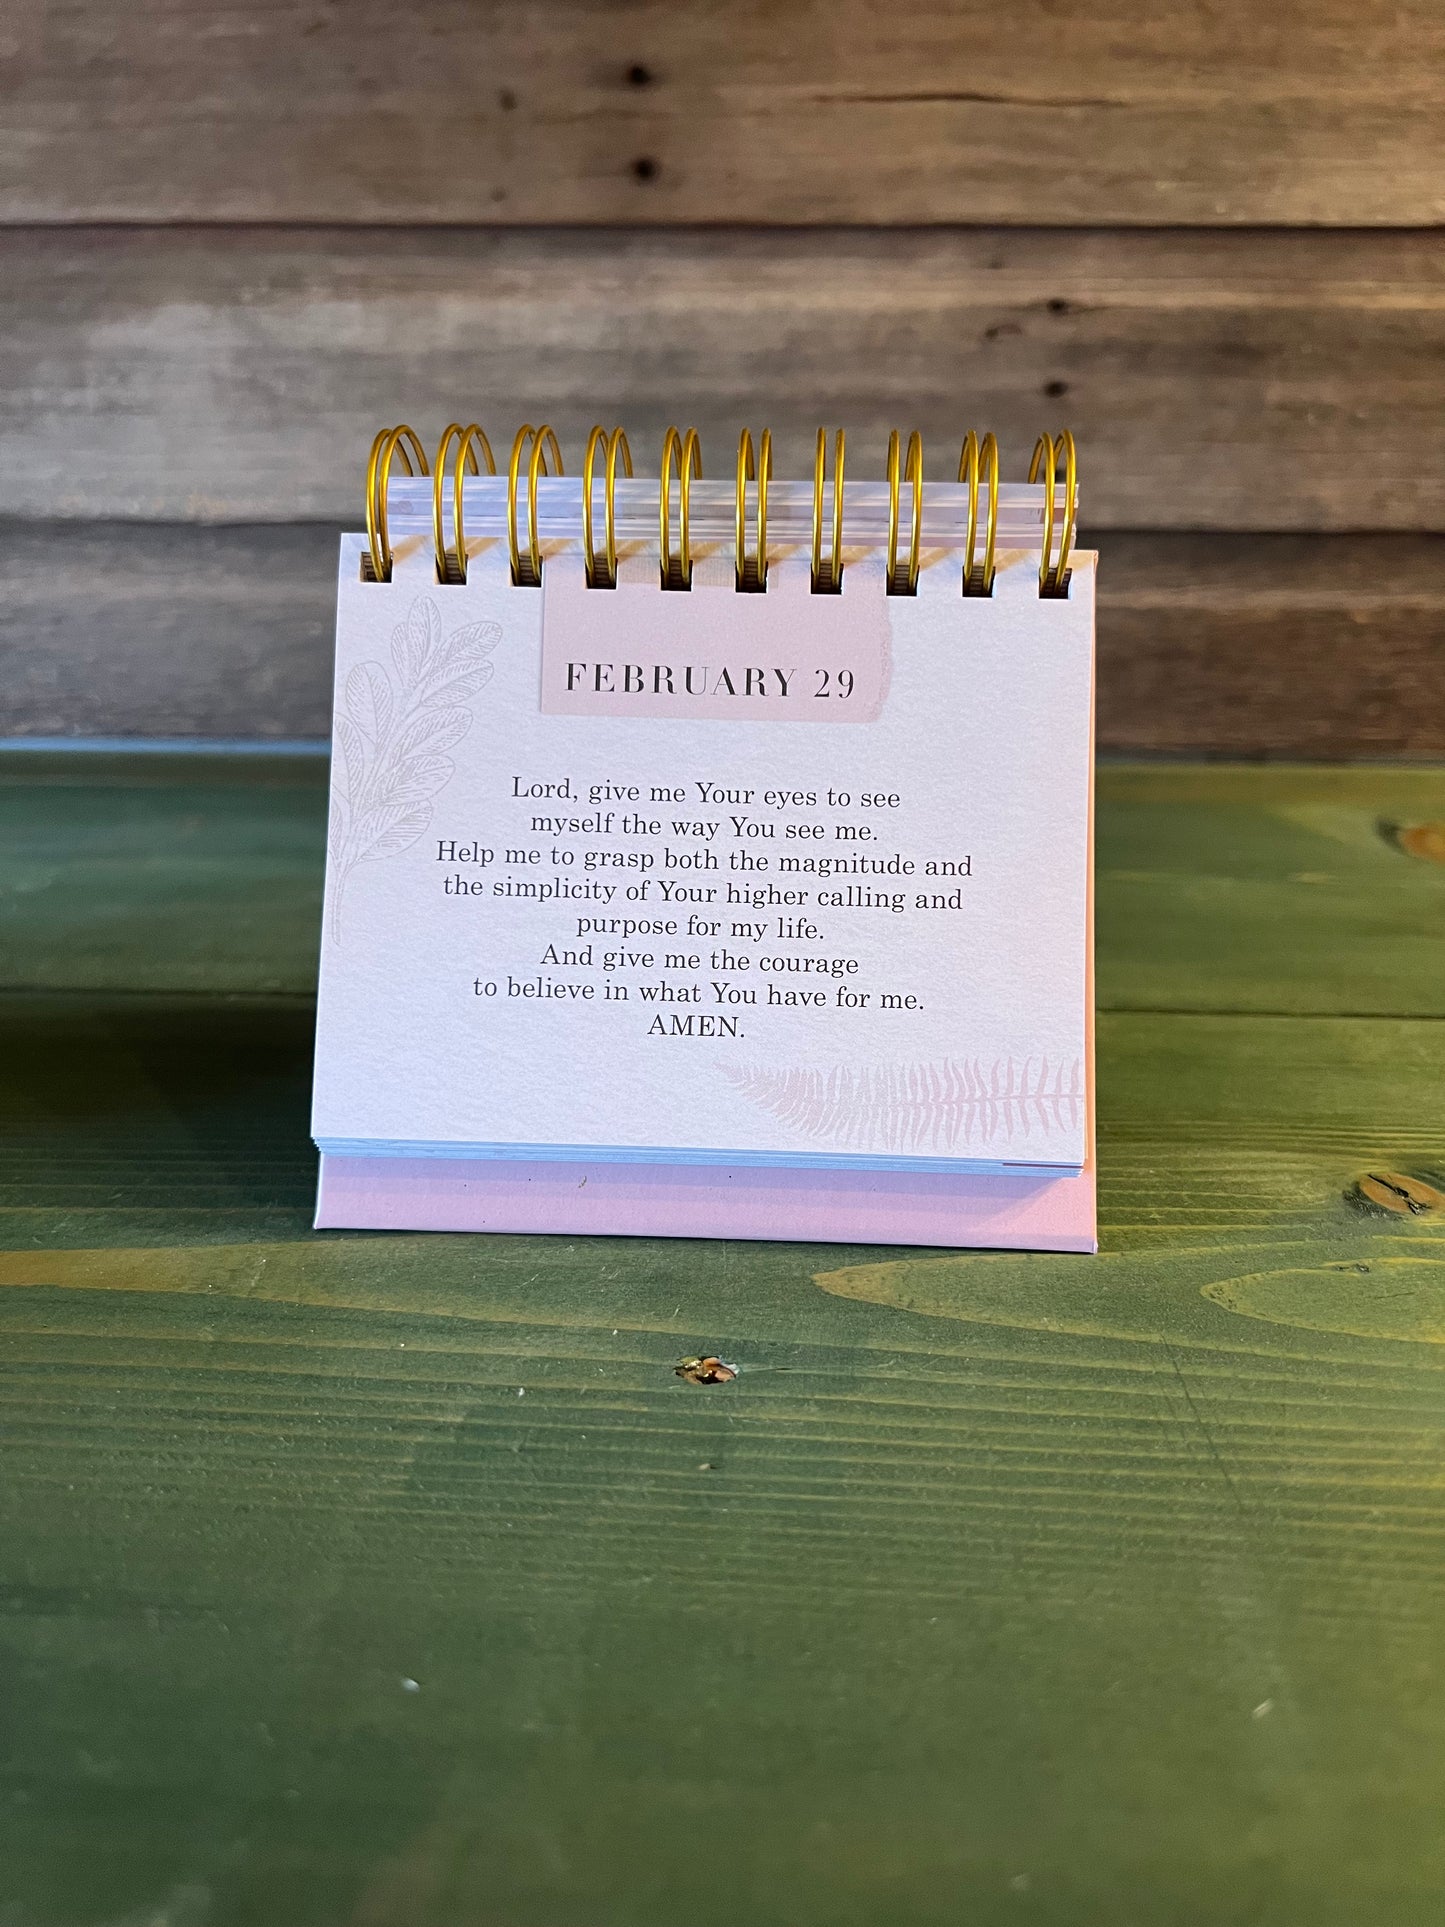 FEBRUARY 29
Lord, give me Your eyes to see
myself the way You see me.
Help me to grasp both the magnitude and
the simplicity of Your higher calling and
purpose for my life.
And give me the courage
to believe in what You have for me.
AMEN.